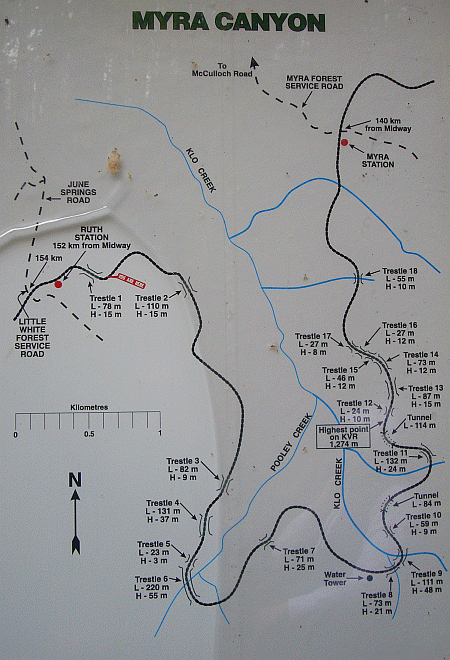 MYRA CANYON
To
McCulloch Road
MYRA FOREST
SERVICE ROAD
140 km
from Midway
MYRA
STATION
KLO CREEK
JUNE
SPRINGS
ROAD
RUTH
STATION
152 km from Midway
154 km
LITTLE
WHITE
FOREST
SERVICE
ROAD
Trestle 1
L - 78 m
H - 15 m
Trestle 2
L - 110 m
H - 15 m
Trestle 18
L - 55 m
H - 10 m
Trestle 17
L - 27 m
H - 8 m
Trestle 16
L - 27 m
H - 12 m
Trestle 15
L - 46 m
H - 12 m
Trestle 14
L - 73 m
H - 12 m
Trestle 13
L - 87 m
H - 15 m
Trestle 12
L - 24 m
H - 10 m
Tunnel
L - 114 m
Highest point
on KVR
1,274 m
Trestle 11
L - 132 m
H - 24 m
Kilometres
0
0.5
1
POOLEY CREEK
KLO CREEK
Trestle 3
L - 82 m
H - 9 m
Trestle 4
L - 131 m
H - 37 m
Trestle 5
L - 23 m
H - 3 m
Trestle 6
L - 220 m
H - 55 m
N
Tunnel
L - 84 m
Trestle 10
L - 59 m
H - 9 m
Trestle 7
L - 71 m
H - 25 m
Water
Tower
Trestle 8
L - 73 m
H - 21 m
Trestle 9
L - 111 m
H - 48 m